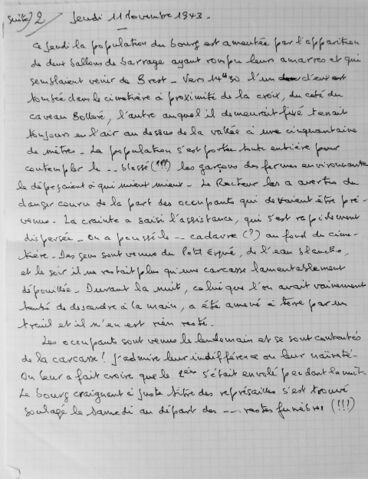 (suite) 2 / Jeudi 11 Novembre 1943.
Ce Jeudi la population du bourg est ameutée par l'apparition
de deux ballons de barrage ayant rompu leurs amarres et qui
semblaient venir de Brest - Vers 14h30 l'un d'eux est
tombé dans le cimetière à proximité de la croix, du côté du
caveau Bolloré, l'autre auquel il demeurait fixé tenait
toujours en l'air au dessus de la vallée à une cinquantaine
de mètre. - La population s'est portée toute entière pour
contempler le -- blessé (!!!) les garçons des fermes environnantes
le dépeçaient à qui mieux mieux - Le Recteur les a avertis du
danger couru de la part des occupants qui devaient être pré-
venus. - La crainte a saisi l'assistance, qui s'est rapidement
dispersée - On a poussé le -- cadavre (?) au fond du cime-
tière - Des gens sont venus du Petit Ergué, de l'eau blanche,
et le soir il ne restait plus qu'une carcasse lamentablement
dépouillée - Durant la nuit, celui que l'on avait vainement
tenté de descendre à la main, a été amené à terre par un
treuil et il n'en est rien resté.
Les occupants sont venus le lendemain et se sont contentés
de la carcasse! J'admire leur indifférence ou leur naïveté.
On leur a fait croire que le 2ème s'était envolé pendant la nuit.
Le bourg craignant à juste titre des représailles s'est trouvé
soulagé le samedi au départ des --- restes funèbres (!!!)